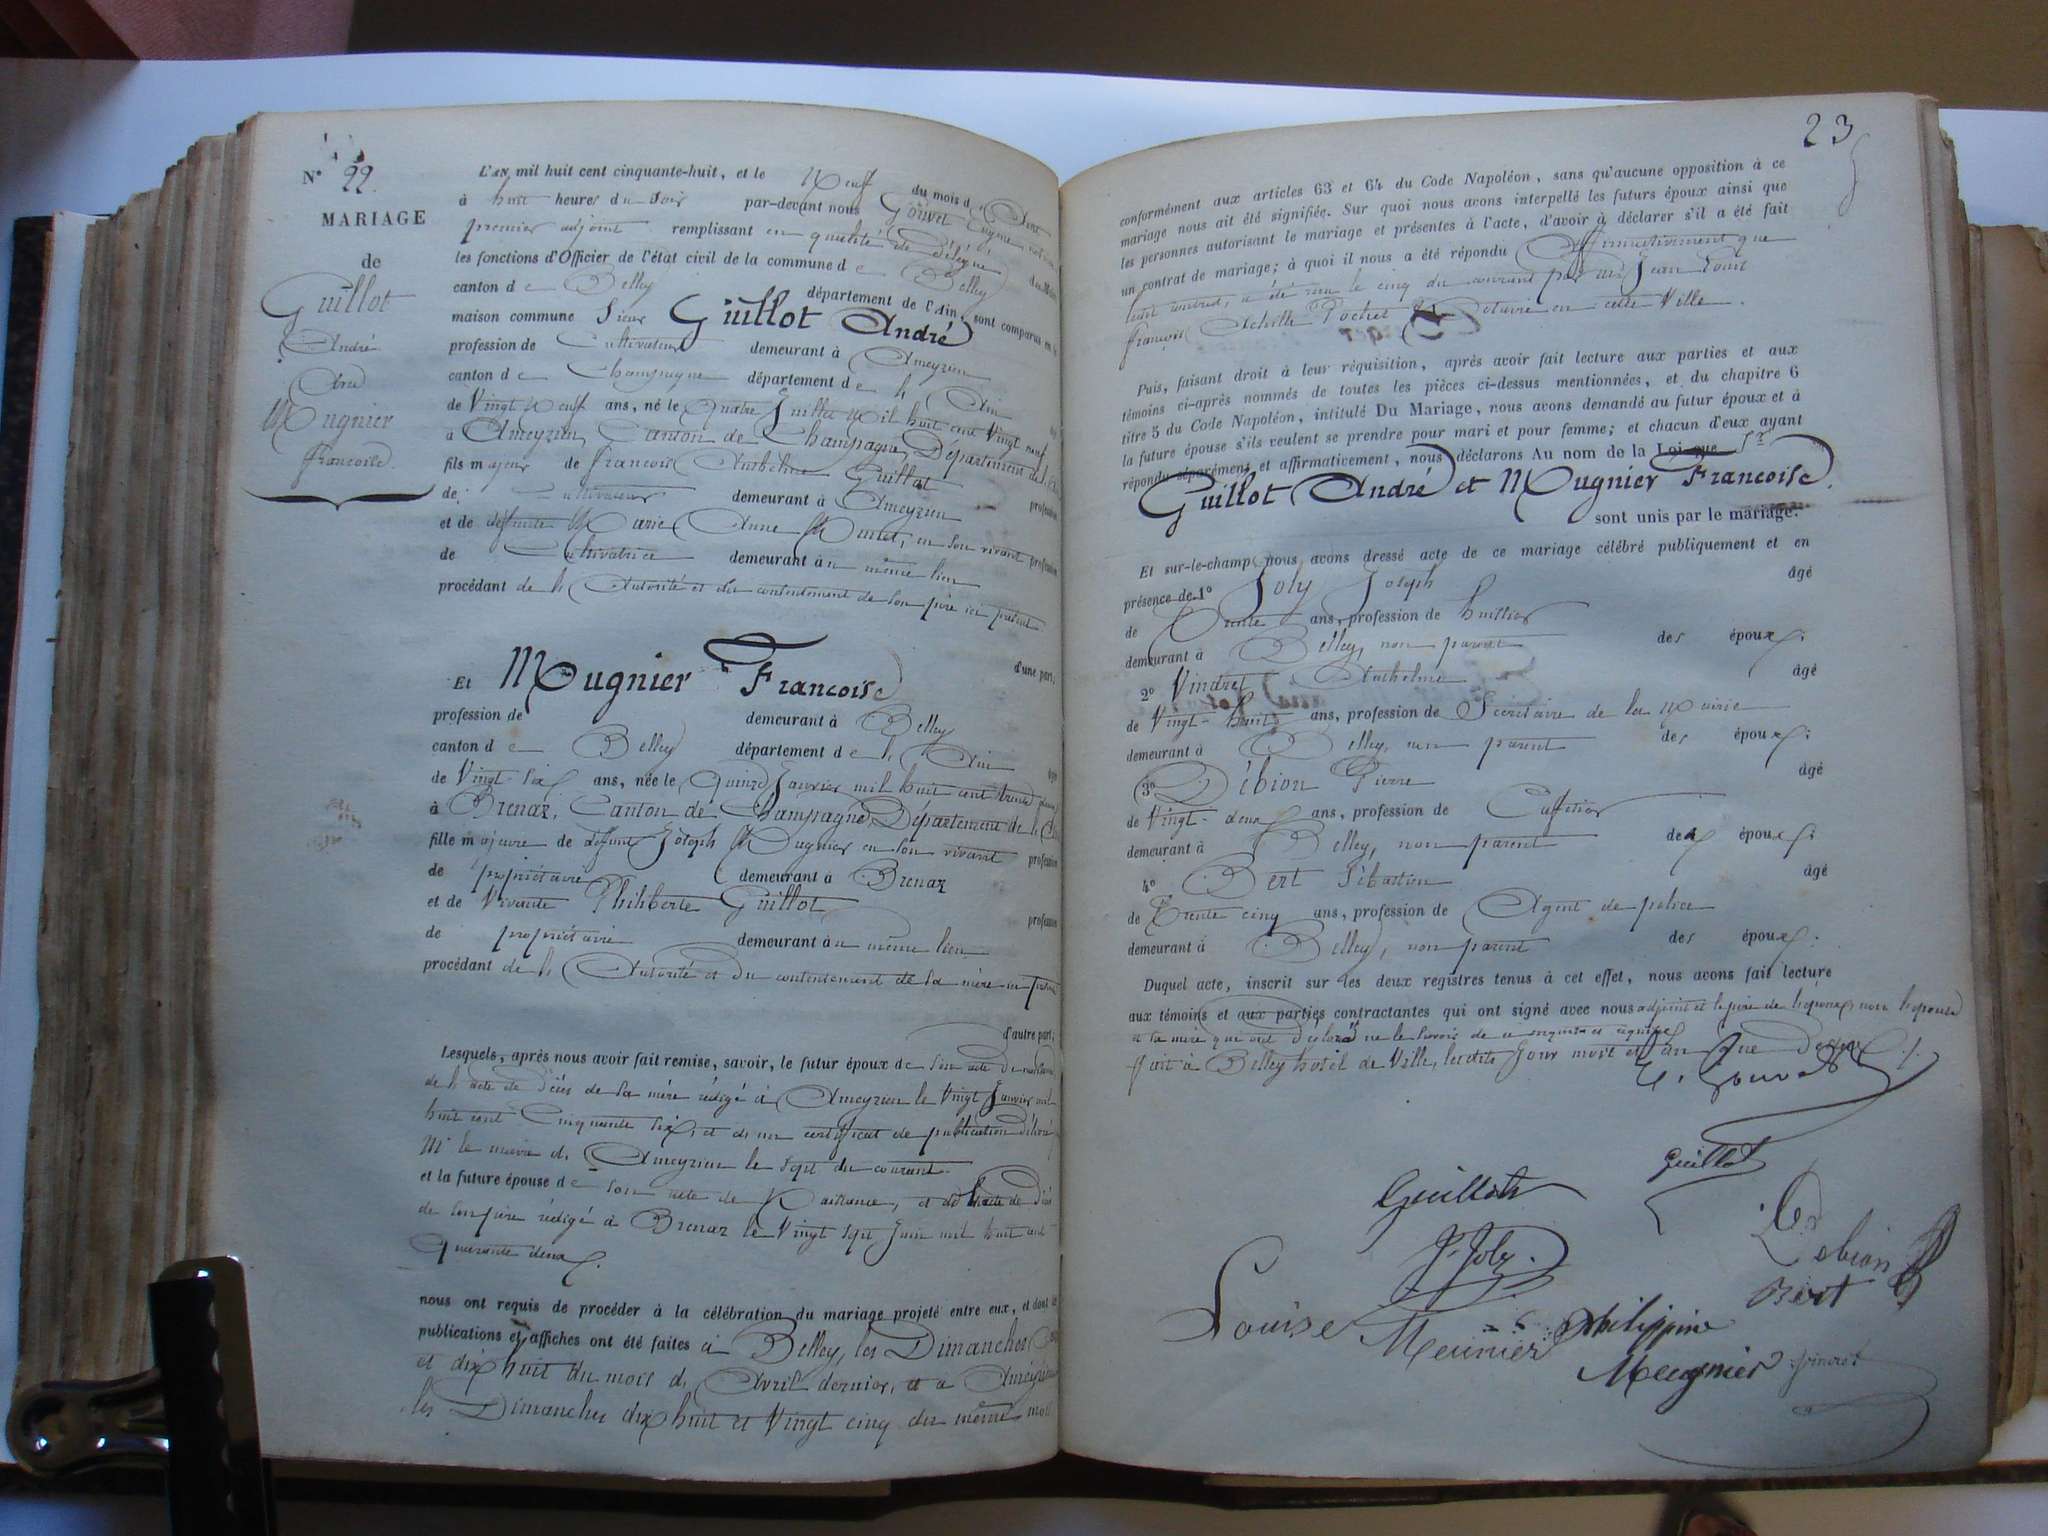 N° 22.
MARIAGE
de
Guillot
André
Avec
Mugnier
francoise.
L'AN mil huit cent cinquante-huit, et le Neuf du mois d
à huit heures du Soir par-devant nous Gouvet Eugène
premier adjoint remplissant en qualité de Délégué
les fonctions d'Officier de l'état civil de la commune de Belley
canton de Belley département de l'Ain, sont comparus en la
maison commune Sieur Guillot André
profession de Cultivateur demeurant à Ameyzieu
canton de Champagne département de l'Ain
de Vingt Neuf ans, né le Quatre Juillet mil huit cent Vingt neuf
à Ameyzieu, Canton de Champagne, Département de l'Ain
fils majeur de francois Anthelme Guillot profession
de Cultivateur demeurant à Ameyzieu
et de défunte Marie Anne en son vivant profession
de Cultivatrice demeurant au même lieu
procédant de l'Autorité et du contentement de son père ici présent
d'une part,
Et Mugnier Francoise
profession de demeurant à Belley
canton de Belley département de l'Ain âgé
de Vingt-Six ans, née le Quinze Janvier mil huit cent trente deux
à Brenaz, Canton de Champagne, Département de l'Ain
fille majeure de défunt Joseph Mugnier en son vivant profession
de propriétaire demeurant à Brenaz
et de Vivante Philiberte Guillot profession
de propriétaire demeurant au même lieu
procédant de l'Autorité et du contentement de sa mère ici présente
d'autre part,
Lesquels, après nous avoir fait remise, savoir, le futur époux de son acte de naissance
de l'acte de Décès de sa mère rédigé à Ameyzieu le Vingt Janvier mil
huit cent Cinquante Six, et d'un certificat de publication délivré
Mr le maire d'Ameyzieu le Sept du courant
et la future épouse de son acte de Naissance, et de l'acte de Décès
de son père rédigé à Brenaz le Vingt Sept Juin mil huit cent
Quarante deux.
nous ont requis de procéder à la célébration du mariage projeté entre eux, et dont les
publications et affiches ont été faites à Belley, les Dimanches
et dix huit du mois d'Avril dernier, et à Ameyzieu
les Dimanches dix huit et Vingt cinq du même mois
23
conformément aux articles 63 et 64 du Code Napoléon, sans qu'aucune opposition à ce
mariage nous ait été signifiée. Sur quoi nous avons interpellé les futurs époux ainsi que
les personnes autorisant le mariage et présentes à l'acte, d'avoir à déclarer s'il a été fait
un contrat de mariage; à quoi il nous a été répondu Affirmativement que
leur contrat, a été reçu le cinq du courant par Me Jean Louis
françois Achille Pochet Notaire en cette Ville.
Puis, faisant droit à leur réquisition, après avoir fait lecture aux parties et aux
témoins ci-après nommés de toutes les pièces ci-dessus mentionnées, et du chapitre 6
titre 5 du Code Napoléon, intitulé Du Mariage, nous avons demandé au futur époux et à
la future épouse s'ils veulent se prendre pour mari et pour femme; et chacun d'eux ayant
répondu séparément et affirmativement, nous déclarons Au nom de la Loi que Sr
Guillot André et Mugnier Francoise.
sont unis par le mariage.
Et sur-le-champ nous avons dressé acte de ce mariage célébré publiquement et en
présence de 1° Joly Joseph âgé
de Trente ans, profession de huissier
demeurant à Belley, non parent des époux;
2° Vindret Anthelme âgé
de Vingt-huit ans, profession de Sécrétaire de la Mairie
demeurant à Belley, non parent des époux;
3° Débion Pierre âgé
de Vingt-deux ans, profession de Caffetier
demeurant à Belley, non parent des époux;
4° Bert Sébastien âgé
de Trente cinq ans, profession de Agent de police
demeurant à Belley, non parent des époux.
Duquel acte, inscrit sur les deux registres tenus à cet effet, nous avons fait lecture
aux témoins et aux parties contractantes qui ont signé avec nous adjoint et le père de l'époux, non l'épouse
et sa mère qui ont Déclaré ne le savoir de ce enquises et
fait à Belley hotel de Ville, lesdits Jour mois et an que Dessus
E. Gouvet
Guillot
Guillot
J. Joly.
Debion
Bert
Louise Meunier
philippine
Meugnier
Vindret